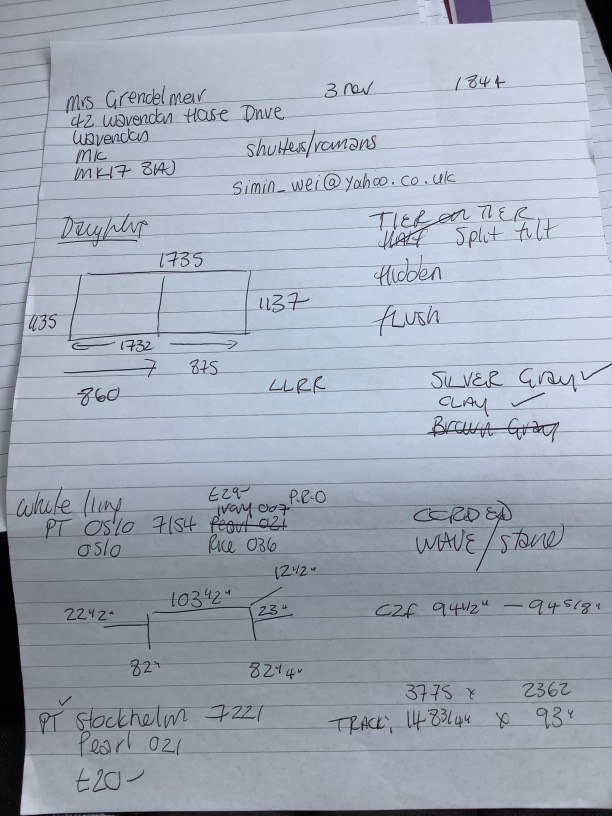 Mrs Grendelmeir 3 nov 1844
42 Wavendon House Drive
Wavendon
MK shutters/romans
MK17 8AJ
simin_wei@yahoo.co.uk
TIER on TIER
Half Split tilt
1735
Hidden
1135 1137
flush
1732
860 875
LLRR SILVER Gray ✓
CLAY ✓
Brown Gray
£29- P.R.O
White Ivory 007 CORDED
PT Oslo 7154 Pearl 021
Oslo Rice 036 WAVE/stand
12 1/2"
103 1/2"
22 1/2" 23" C2f 94 1/2" - 94 5/8"
82" 82 1/4"
3775 x 2362
✓
PT Stockholm 7221 TRACK: 148 3/4" x 93"
Pearl 021
£20-